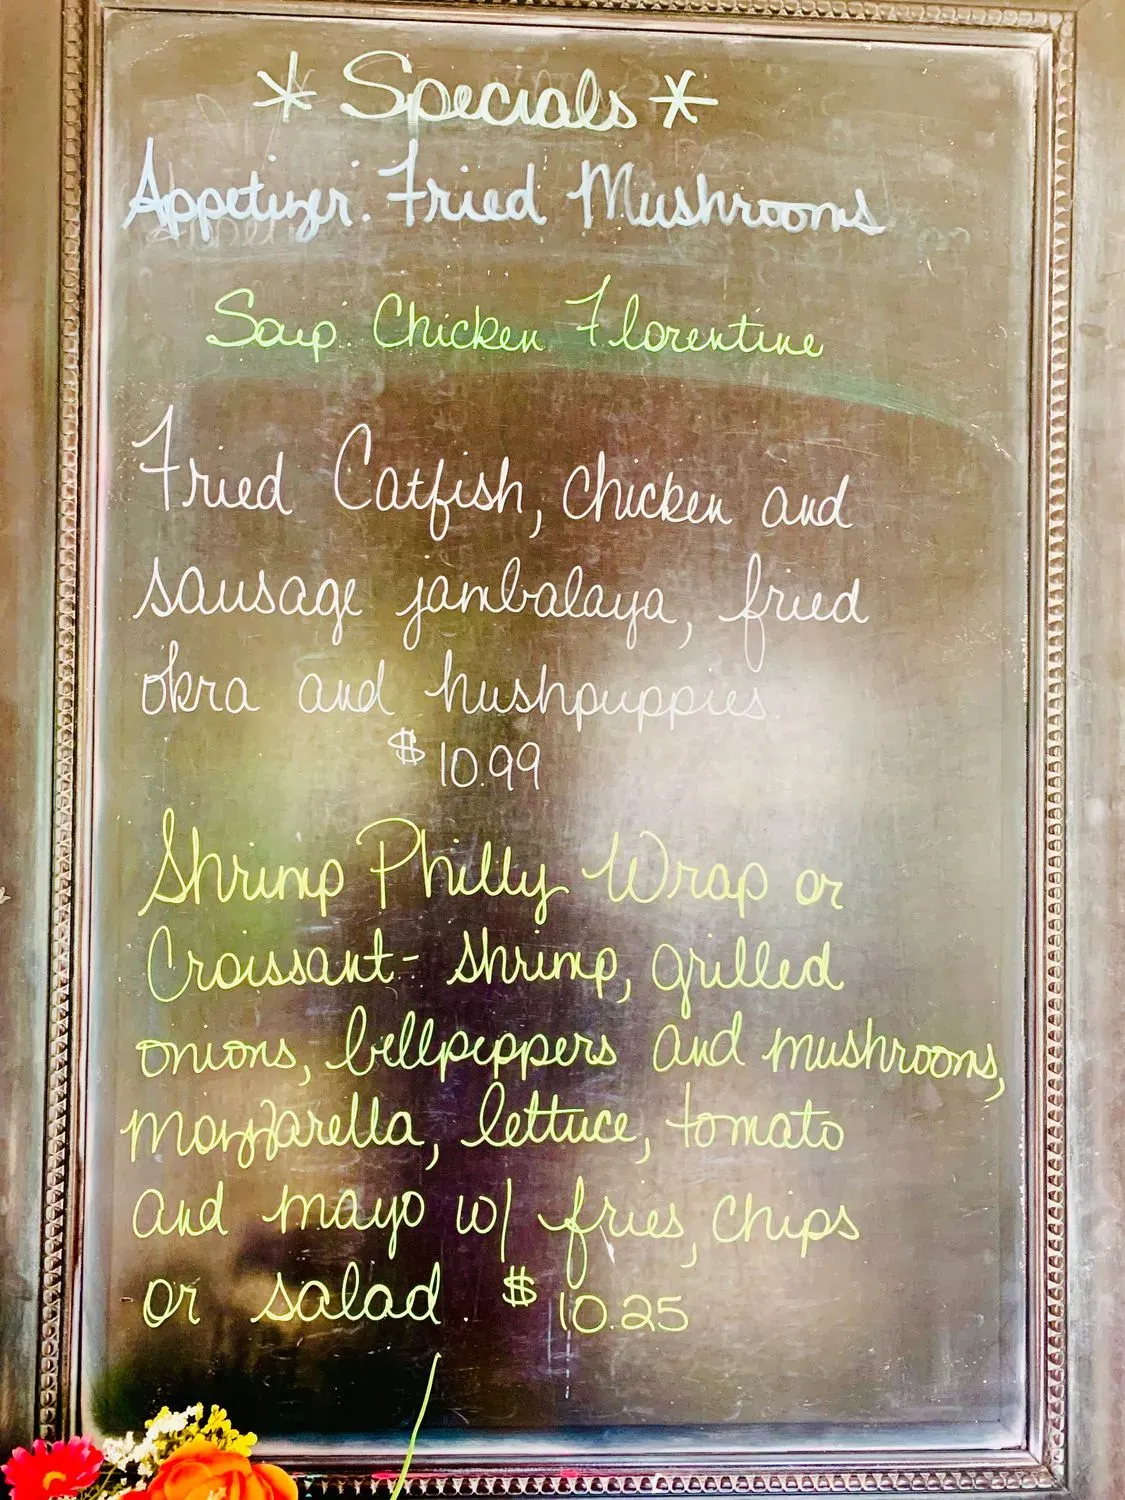 * Specials *
Appetizer: Fried Mushrooms
Soup: Chicken Florentine
Fried Catfish, chicken and
sausage jambalaya, fried
okra and hushpuppies.
$10.99
Shrimp Philly Wrap or
Croissant- shrimp, grilled
onions, bellpeppers and mushrooms,
mozzarella, lettuce, tomato
and mayo w/ fries, chips
or salad. $10.25